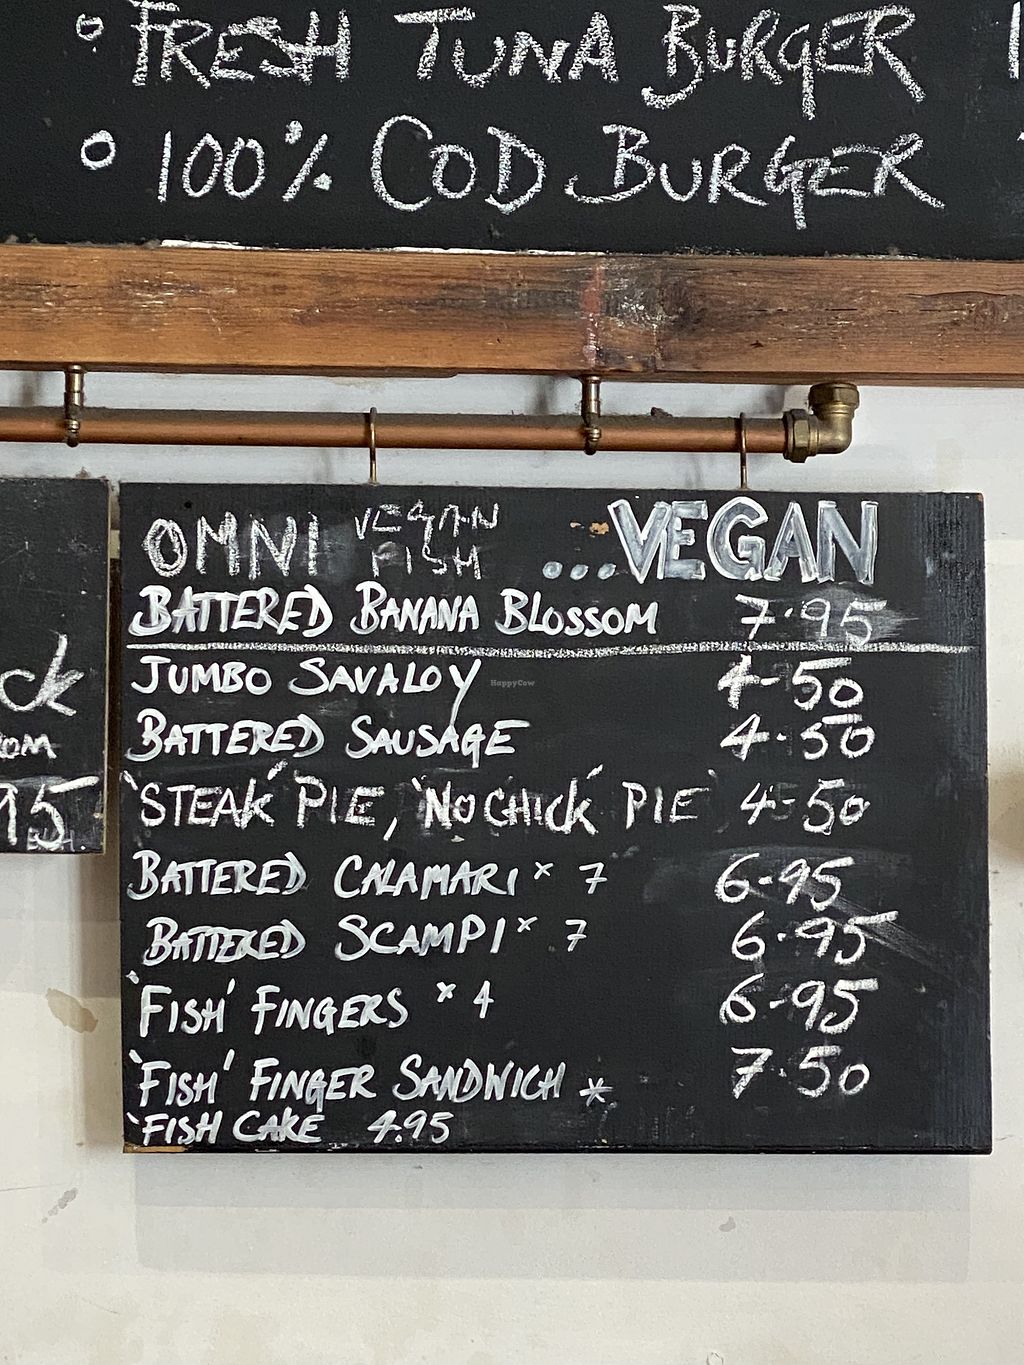 ° FRESH TUNA BURGER
° 100% COD BURGER
OMNI VEGAN FISH ...VEGAN
BATTERED BANANA BLOSSOM 7.95
JUMBO SAVALOY 4-50
BATTERED SAUSAGE 4.50
'STEAK' PIE, 'NO CHICK' PIE 4-50
BATTERED CALAMARI x 7 6-95
BATTERED SCAMPI x 7 6.95
'FISH' FINGERS x 4 6-95
'FISH' FINGER SANDWICH * 7.50
'FISH CAKE 4.95
HappyCow